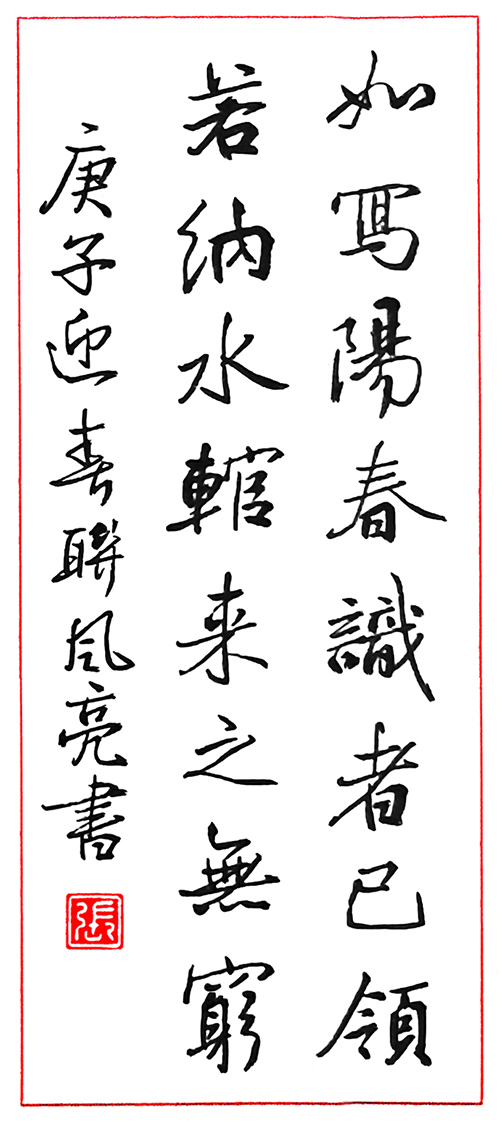 如寫陽春識者已領
若納水輨来之無窮
庚子迎春聯風亮書
張